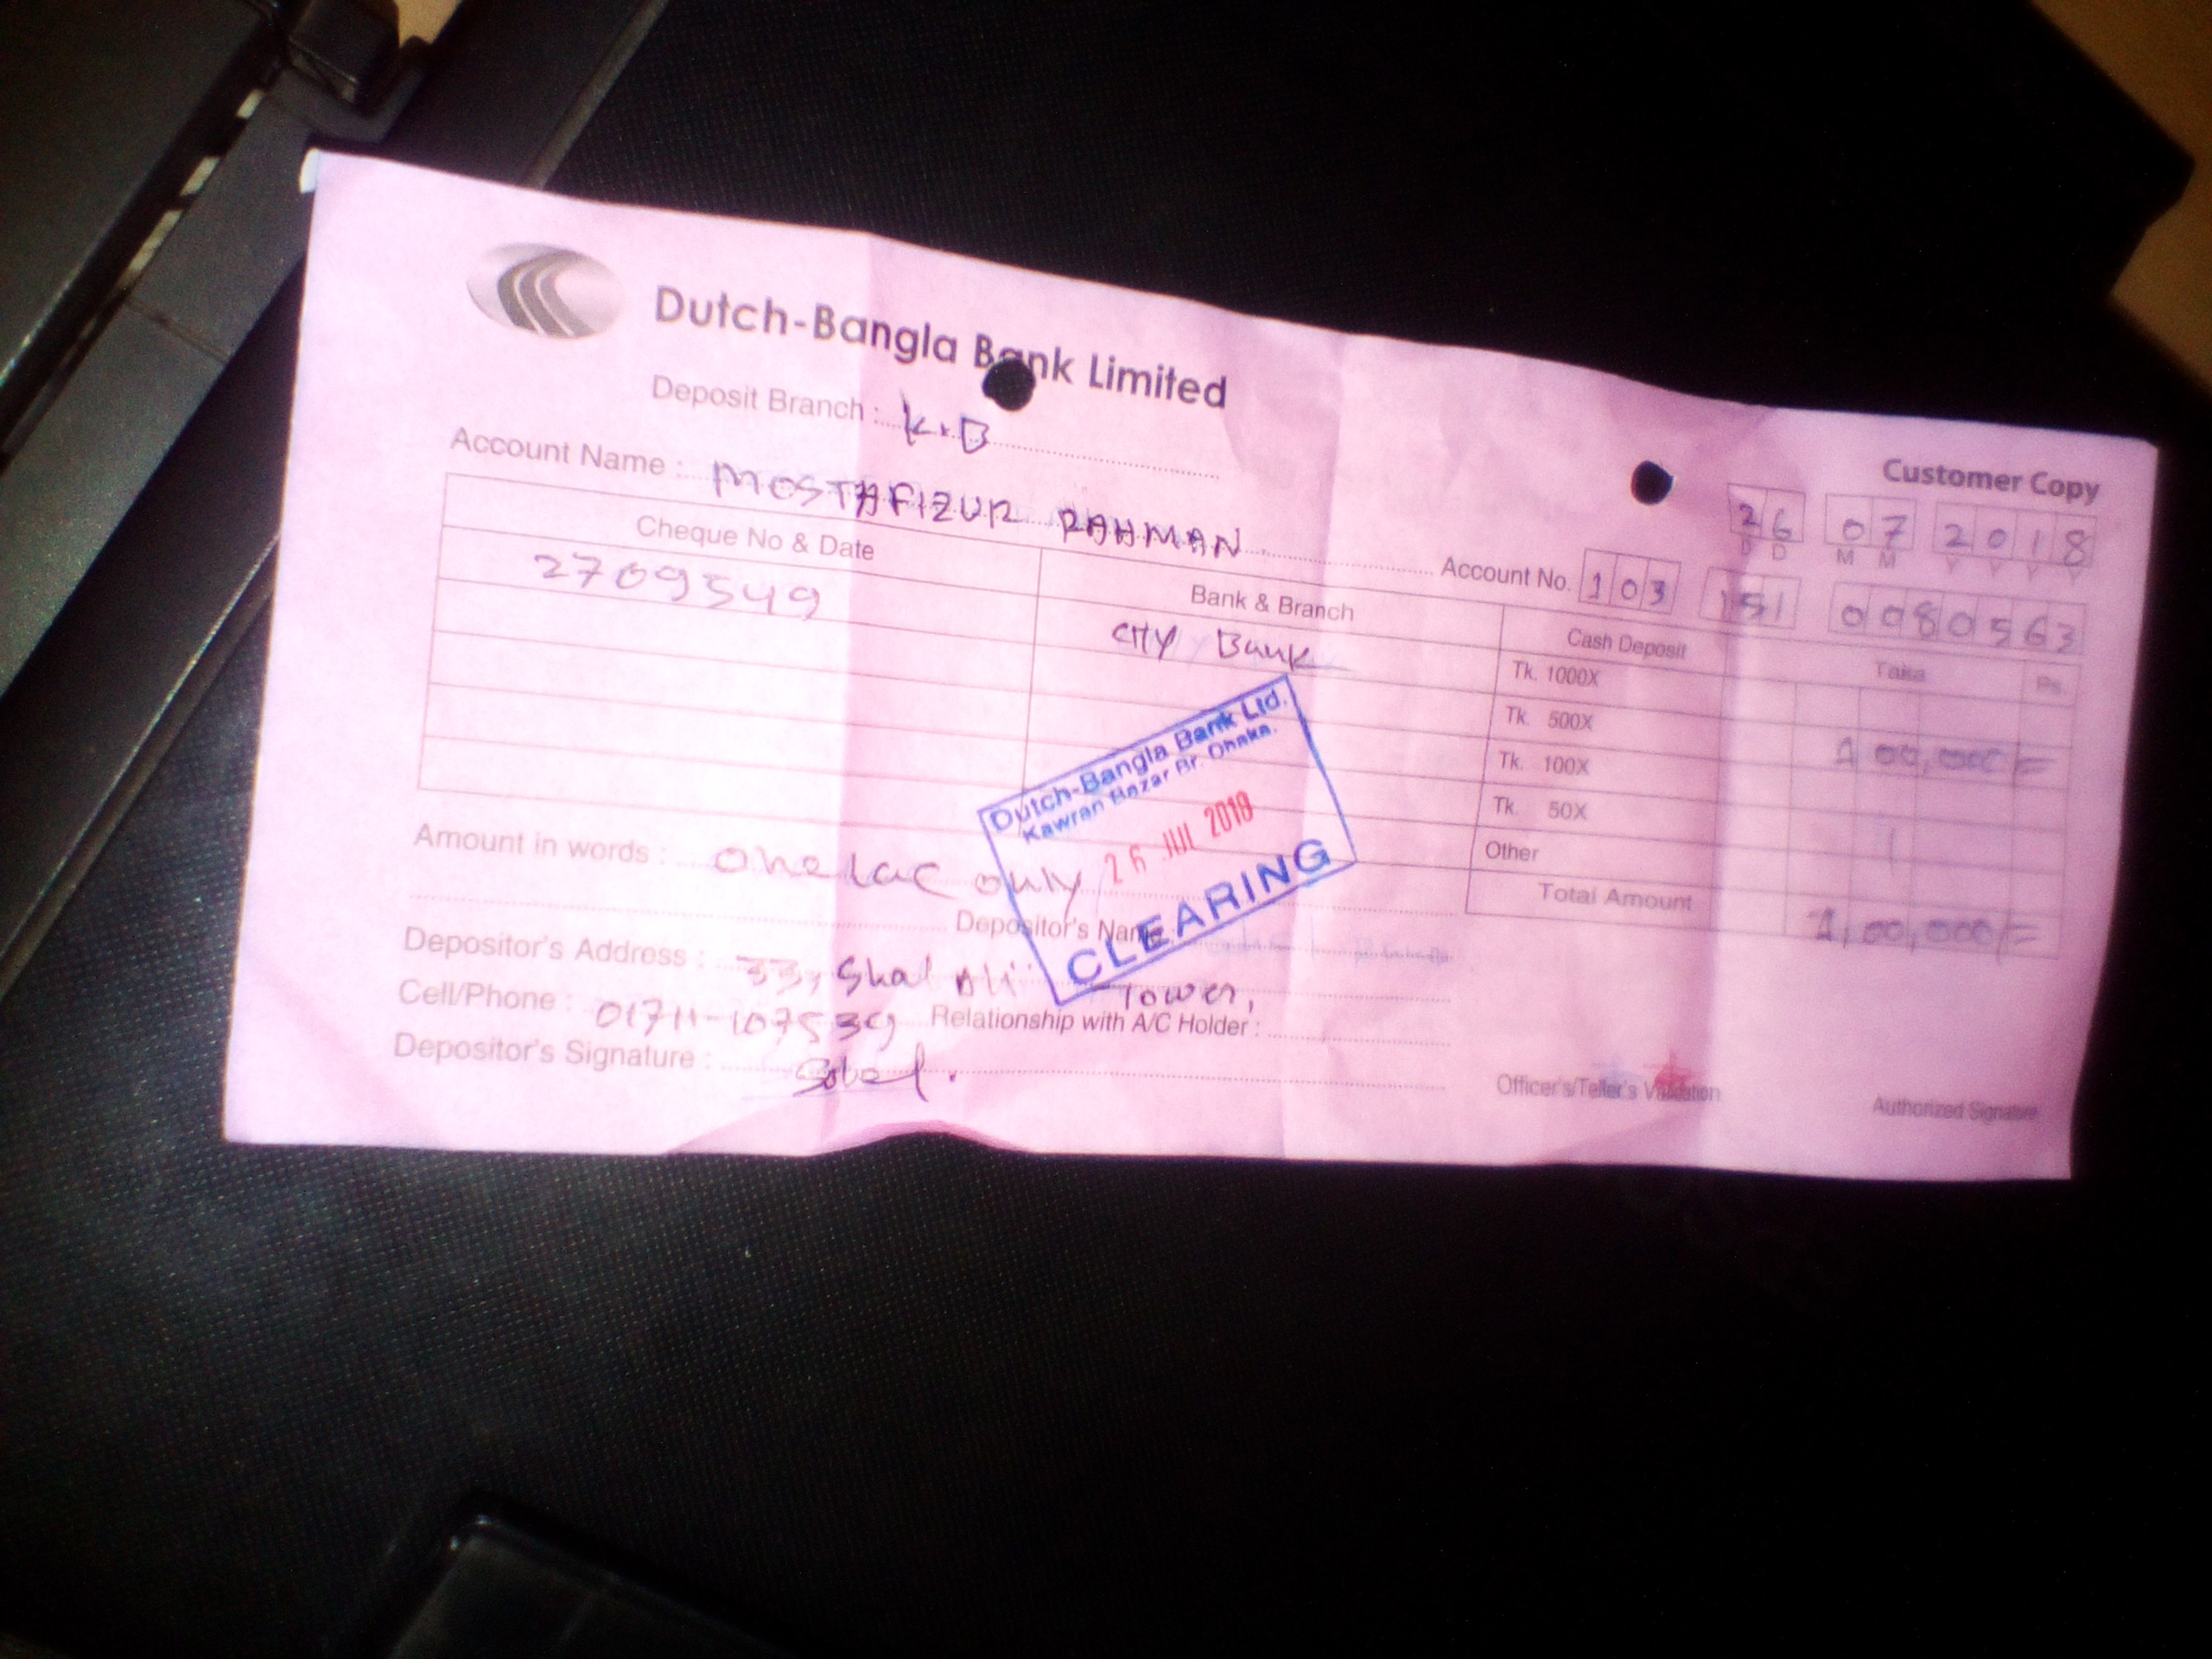 Dutch-Bangla Bank Limited
Customer Copy
Deposit Branch : K.B
26 07 2018
D D M M Y Y Y Y
Account Name : MOSTAFIZUR RAHMAN
Account No. 103 151 0080563
Cheque No & Date Bank & Branch Cash Deposit Taka Ps.
2709549 CITY Bank Tk. 1000X
Tk. 500X
Tk. 100X 100,000/=
Tk. 50X
Other
Total Amount 1,00,000/=
Dutch-Bangla Bank Ltd.
Kawran Bazar Br. Dhaka.
26 JUL 2018
CLEARING
Amount in words : One lac only
Depositor's Name
Depositor's Address : 33, Shal Ali Tower,
Cell/Phone : 01711-107539 Relationship with A/C Holder :
Depositor's Signature :
Officer's/Teller's Validation
Authorized Signature